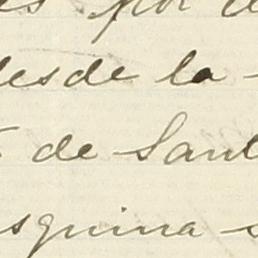 es por
desde la
de Sant
squina